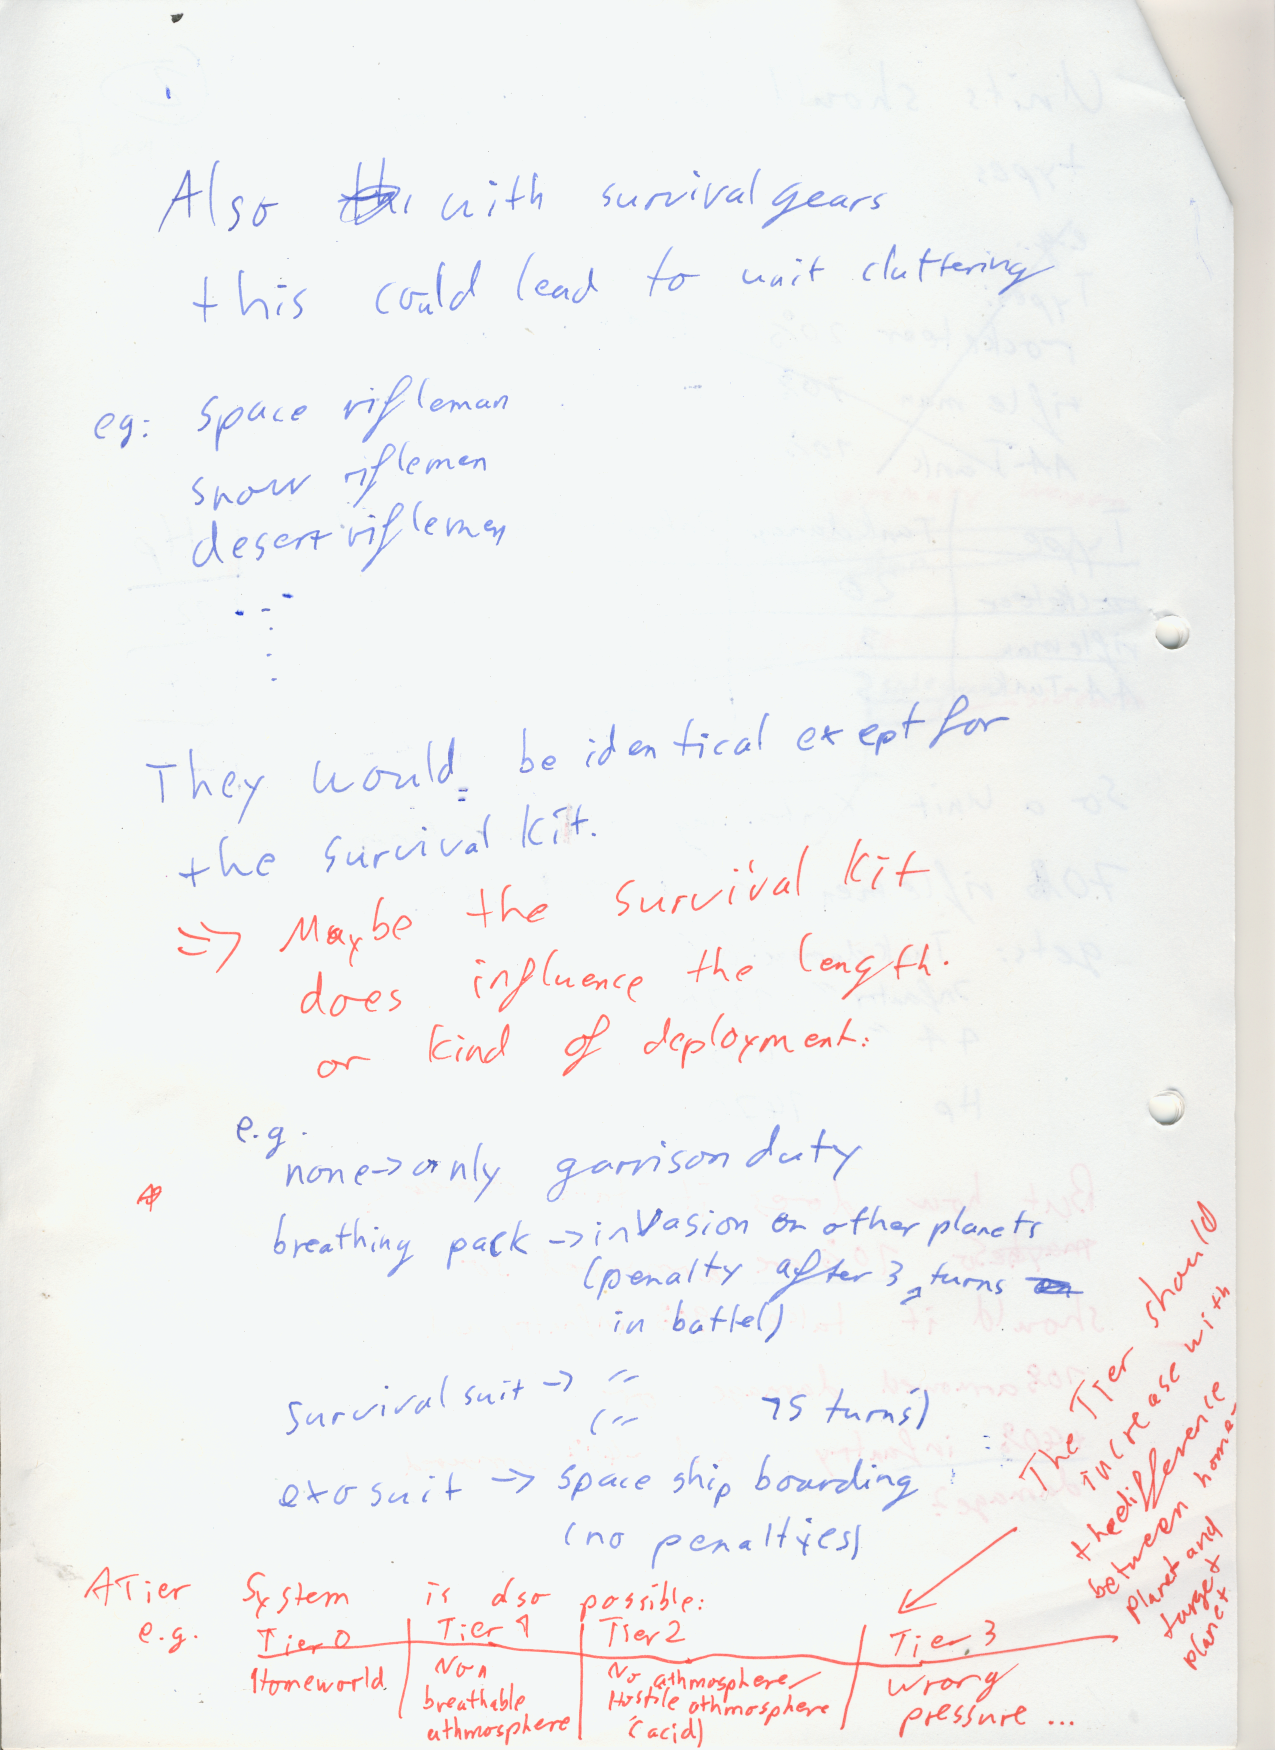 Also with survival gears
this could lead to unit cluttering
eg: space rifleman
snow riflemen
desert riflemen
...
They would be identical except for
the survival kit.
=> Maybe the survival kit
does influence the length.
or kind of deployment:
e.g.
none -> only garrison duty
breathing pack -> invasion on other planets
(penalty after 3 turns
in battle()
survival suit -> "
(" 75 turns)
exosuit -> space ship boarding
(no penalties)
A Tier System is also possible:
e.g. Tier 0 | Tier 1 | Tier 2 | Tier 3
Homeworld | Non breathable athmosphere | No athmosphere/ Hostile athmosphere (acid) | wrong pressure ...
The Tier should
increase with
the difference
between home-
planet and
target
planet